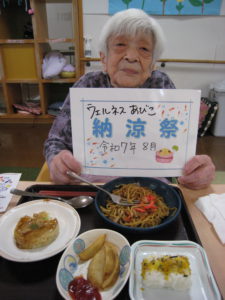 ウェルネスあびこ
納涼祭
令和7年8月